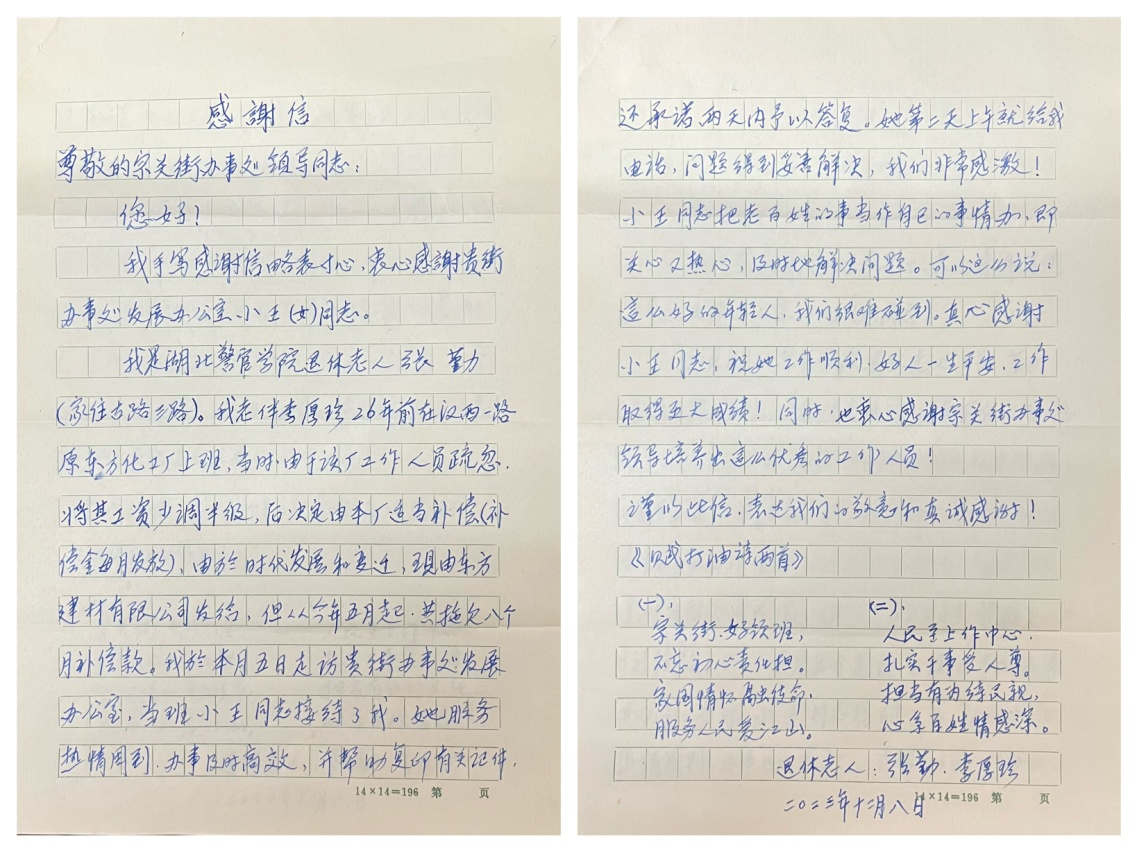 感謝信
尊敬的宗关街办事处领导同志：
您好！
我手写感谢信略表寸心，衷心感謝贵街
办事处发展办公室、小王(女)同志。
我是湖北警官学院退休老人张勤
(家住古路三路)。我老伴李厚珍26年前在汉西一路
原东方化工厂上班，当时由于该厂工作人员疏忽，
将其工资少调半级，后决定由本厂适当补偿(补
偿金每月发放)，由於时代发展和变迁，现由东方
建材有限公司发给，但从今年五月起，共拖欠八个
月补偿款。我於本月五日走访贵街办事处发展
办公室，当班小王同志接待了我。她服务
热情周到，办事及时高效，并帮助复印有关证件，
14×14=196 第 页
还承诺两天内予以答复。她第二天上午就给我
电话，问题得到妥善解决，我们非常感激！
小王同志把老百姓的事当作自己的事情办，即
关心又热心，及时地解决问题。可以这么说：
這么好的年轻人，我们很难碰到。真心感谢
小王同志，祝她工作顺利，好人一生平安，工作
取得更大成绩！同时，也衷心感谢宗关街办事处
领导培养出這么优秀的工作人员！
谨以此信，表达我们的敬意和真诚感谢！
《赋打油诗两首》
(一)，
宗关街，好领班，
不忘初心责任担。
家国情怀高出使命，
服务人民爱江山。
(二)，
人民至上作中心，
扎实干事受人尊。
担当有为锋民親，
心系百姓情感深。
退休老人：张勤、李厚珍
14×14=196 第 页
二〇二三年十二月八日